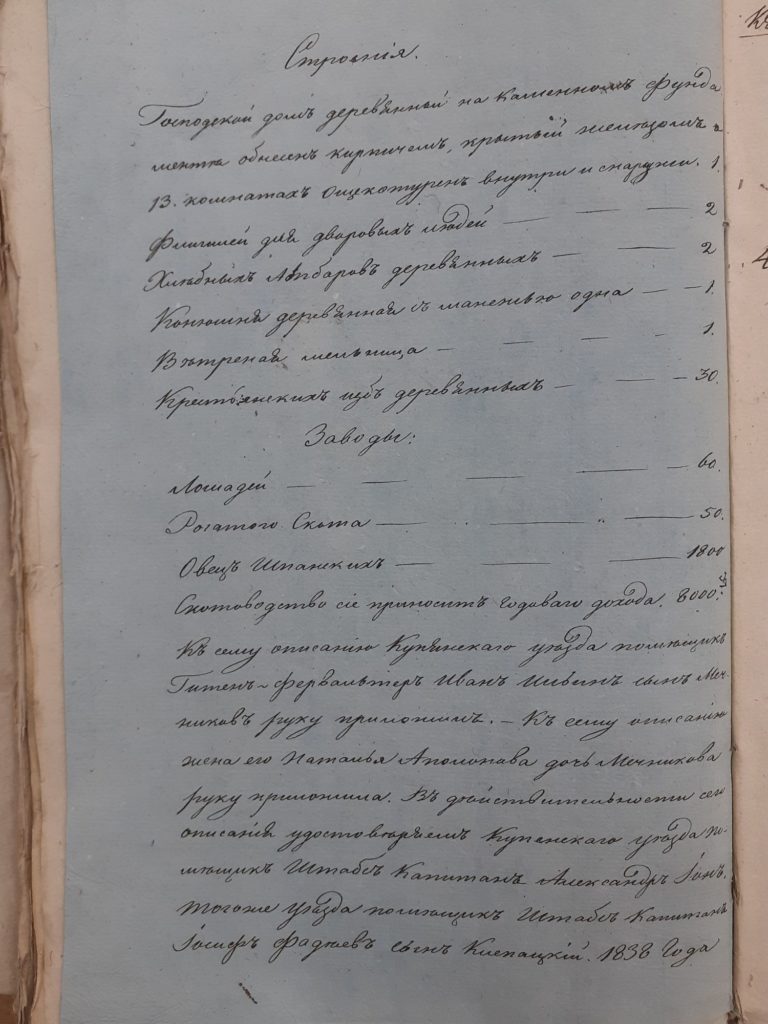 Строенія.
Господской домъ деревянный на каменномъ фунда
мента обнесенъ кирпичемъ, крытый железомъ о
13. комнатахъ ощекотуренъ внутри и снаружи. 1.
Флигилей для дворовыхъ людей — — — 2
Хлѣбныхъ Анбаровъ деревянныхъ — — — 2
Конюшня деревянная съ манежью одна — — 1.
Вѣтреная мельница — — — — 1.
Крестьянскихъ избъ деревянныхъ — — — 30.
Заводы:
Лошадей — — — — — 60.
Рогатого Скота — — — 50.
Овецъ Шпанскихъ — — — 1800
Скотоводство сіе приноситъ годоваго дохода. 8000.
Къ сему описанію Купянскаго уѣзда помѣщикъ
Гитенъ-фервальтеръ Иванъ Ильинъ сынъ Меч-
никовъ руку приложилъ. — Къ сему описанію
жена его Наталья Аполонова дочь Мечникова
руку приложила. Въ дѣйствительности сего
описанія удостовѣряемъ Купенскаго уѣзда по-
мѣщикъ Штабсъ Капитанъ Александръ Іонъ,
тогоже уѣзда помѣщикъ Штабсъ Капитанъ
Іосифъ Фадѣевъ сынъ 1838 Года